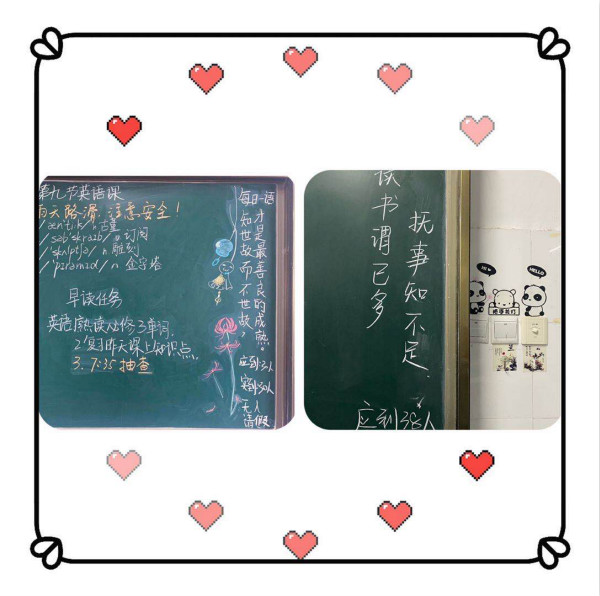 第九节英语课
雨天路滑,注意安全!
n 古董
/səbˈskraɪb/ v 订阅
n 雕刻
n 金字塔
早读任务
英语:1.熟读必修三单词.
2.复习昨天课上知识点.
3. 7:35 抽查
每日一语
知世故而不世故,
才是最善良的成熟。
应到38人
实到38人
无人请假
读书谓已多
抚事知不足.
应到38人
Hi
HELLO